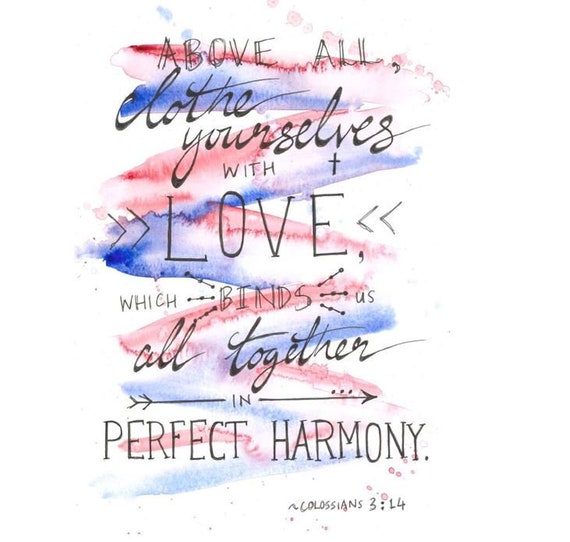 ABOVE ALL,
clothe
yourselves
WITH
LOVE,
WHICH BINDS US
all together
IN
PERFECT HARMONY.
~COLOSSIANS 3:14